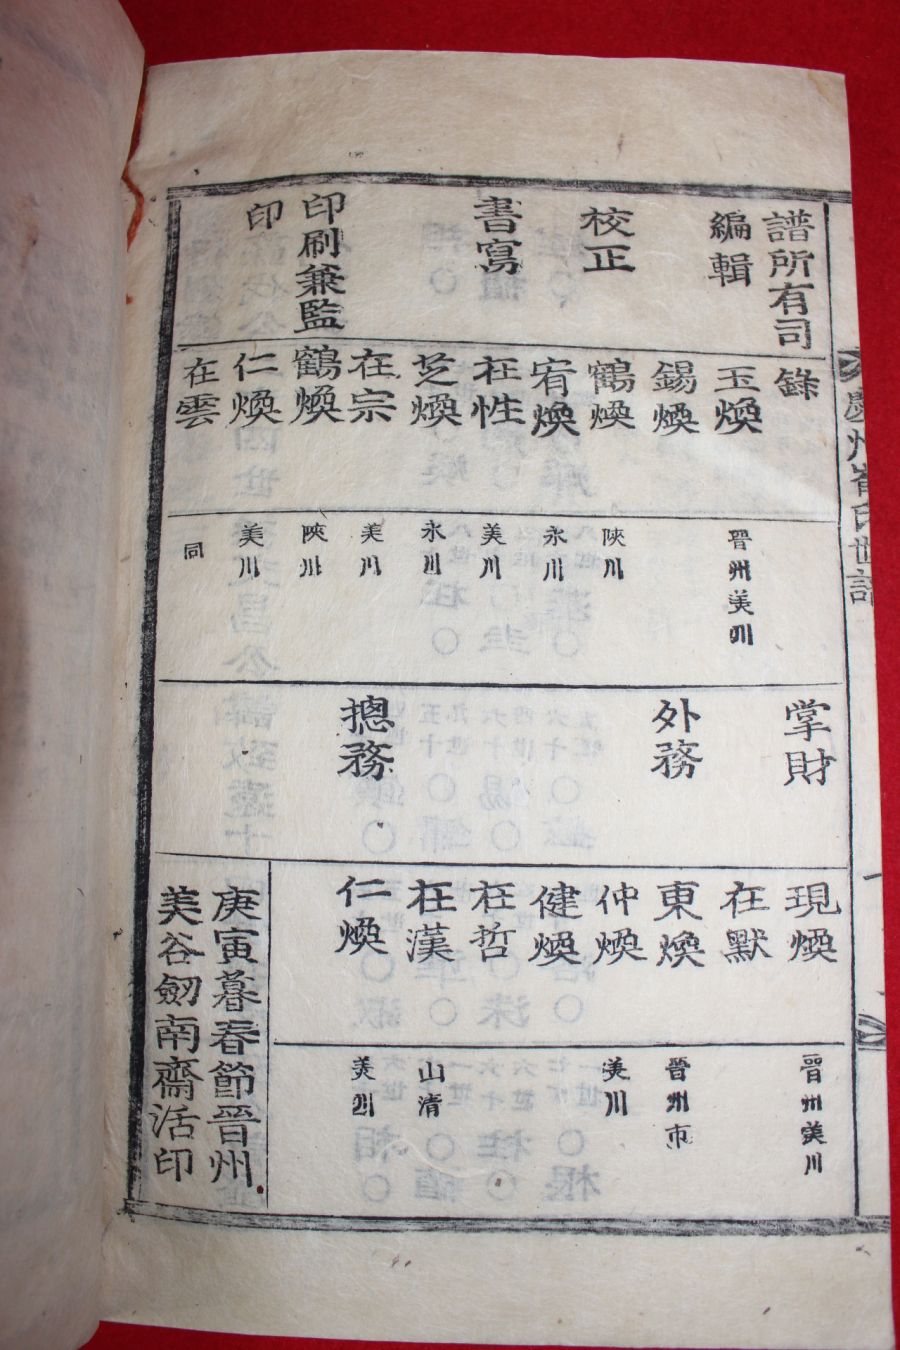 慶州崔氏世譜
一
譜所有司錄
編輯
玉煥 晉州美川
錫煥
校正
鶴煥 陜川
宥煥 永川
書寫
在性 美川
芝煥 永川
在宗 美川
印刷兼監印
鶴煥 陜川
仁煥 美川
在雲 同
掌財
現煥 晉州美川
在默
外務
東煥 晉州市
仲煥 美川
健煥
在哲
在漢 山清
摠務
仁煥 美川
庚寅暮春節晉州
美谷劒南齋活印